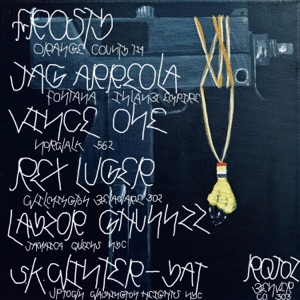 FROSTY
ORANGE COUNTY 714
JAG ARREOLA
FONTANA INLAND EMPIRE
VINCE ONE
NORWALK 562
REX LUGER
WILMINGTON DELAWARE 302
LABOR GNUNNZZ
JAMAICA QUEENS NYC
SKWINTER-DAT
UPTOWN WASHINGTON HEIGHTS NYC
DENVER
CO 303